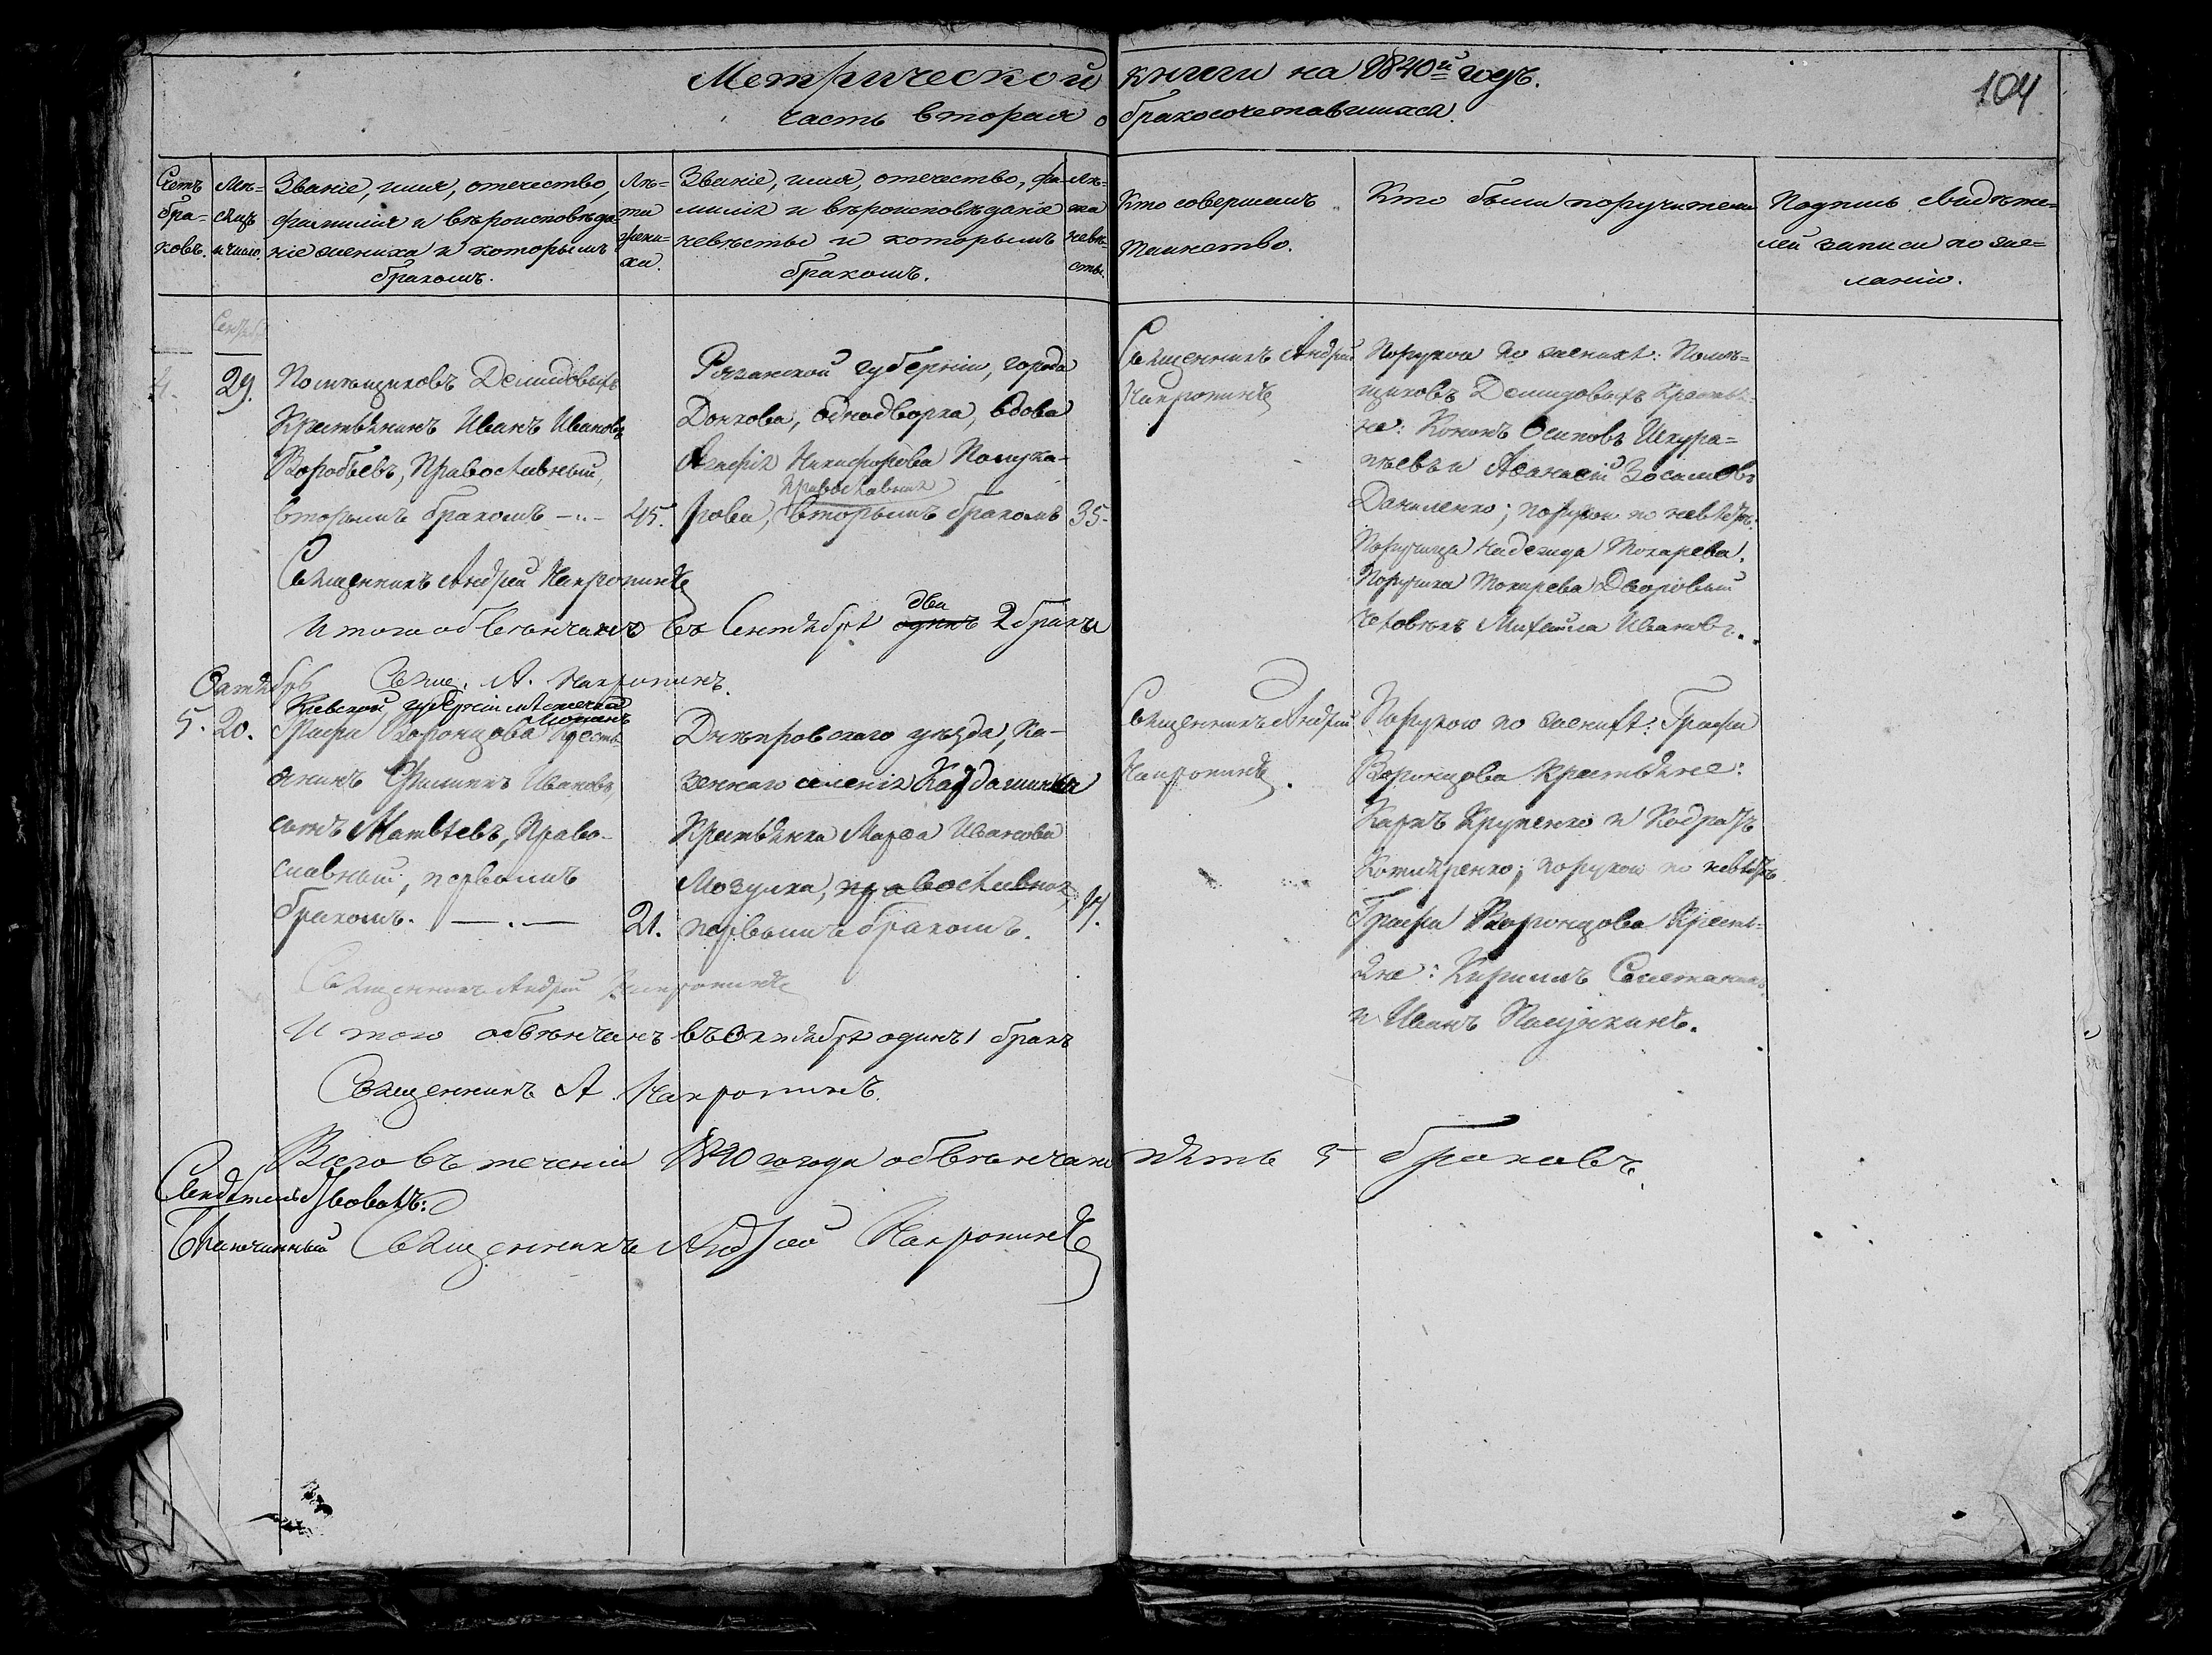 Метрической книги на 1840й годъ.
104
часть вторая о бракосочетавшихся.
Счетъ браковъ.
Мѣсяцъ и число.
Званіе, имя, отечество,
фамилія и вѣроисповѣда-
ніе жениха и которымъ
бракомъ.
Лѣ-
та
жени-
ха.
Званіе, имя, отечество, фа-
милія и вѣроисповѣданіе
невѣсты и которымъ
бракомъ.
Лѣ-
та
невѣ-
сты.
Кто совершалъ
таинство.
Кто были поручители
Подпись свидѣте-
лей записи по же-
ланію.
Сентябрь
4.
29.
Помѣщиковъ Демидовыхъ
Крестьянинъ Иванъ Ивановъ
Воробьевъ, Православный,
вторымъ бракомъ
45.
Рязанской губерніи, города
Донкова, однодворка, вдова
Никифорова
православная
рова, вторымъ бракомъ
35.
Священникъ Андрей
Накропинъ
Порукою по женихѣ: Помѣ-
щиковъ Демидовыхъ Крестья-
не: Кононъ Осиповъ
и
Даниленко; порукою по невѣстѣ:
Поручица Надежда Токарева.
Поручика Токарева Дворовый
человѣкъ Михайла Ивановъ.
Священникъ Андрей Накропинъ
Итого обвѣнчано въ Сентябрѣ
два
одинъ 2 брака
Свящ. А. Накропинъ.
Октябрь
Кіевской губерніи мѣстечка
Мошнъ
5.
20.
Графа Воронцова Кресть-
янинъ Филиппъ Ивановъ,
сынъ Матвѣевъ, Право-
славный, первымъ
бракомъ.
21.
Днѣпровскаго уѣзда, Ка-
зеннаго селенія Кардашинка
Крестьянка Марѳа Иванова
Мозулка, православная,
первымъ бракомъ.
Священникъ Андрей
Накропинъ.
Порукою по женихѣ: Графа
Воронцова Крестьяне:
Карпъ Крупенко и Кодратъ
порукою по невѣстѣ
Графа Воронцова Кресть-
яне: Кириллъ
и Иванъ
Священникъ Андрей Накропинъ
Итого обвѣнчанъ въ Октябрѣ одинъ 1 бракъ
Священникъ А. Накропинъ.
Всего въ теченіи 1840 года обвѣнчано пять 5 браковъ.
Свидѣтельствовалъ:
Благочинный Священникъ Андрей Накропинъ